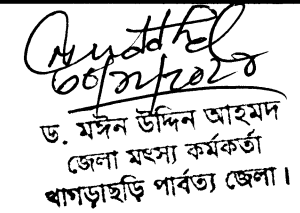 ড. মঈন উদ্দিন আহমদ
জেলা মৎস্য কর্মকর্তা
খাগড়াছড়ি পার্বত্য জেলা।